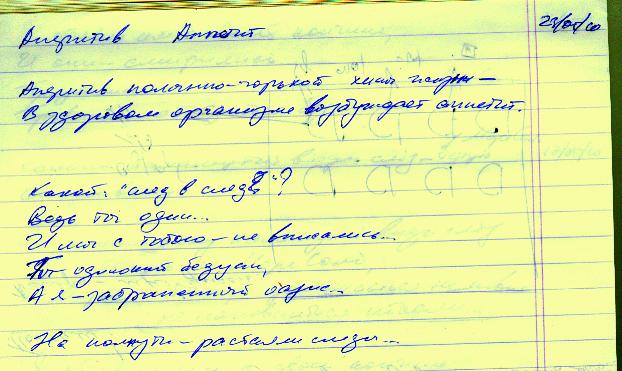 Аперитив Аппетит 29/05/10
Аперитив полынно-горький хины жизни –
В здоровом организме возбуждает аппетит.
Какой: "след в след"?
Ведь ты один...
И мы с тобою – не вписались...
Ты одинокий бедуин,
А я – заброшенный оазис...
На полпути – растаяли следы...